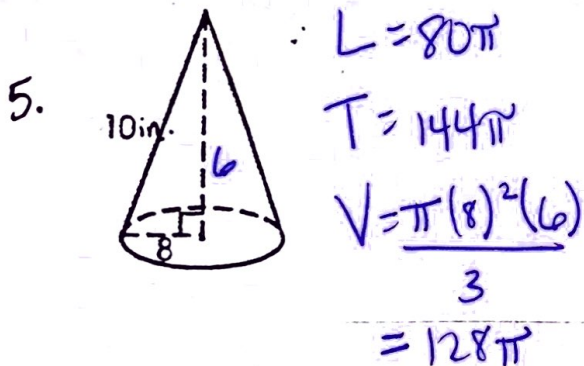 5.
10in.
6
8
L = 80π
T = 144π
V = π(8)²(6)
3
= 128π